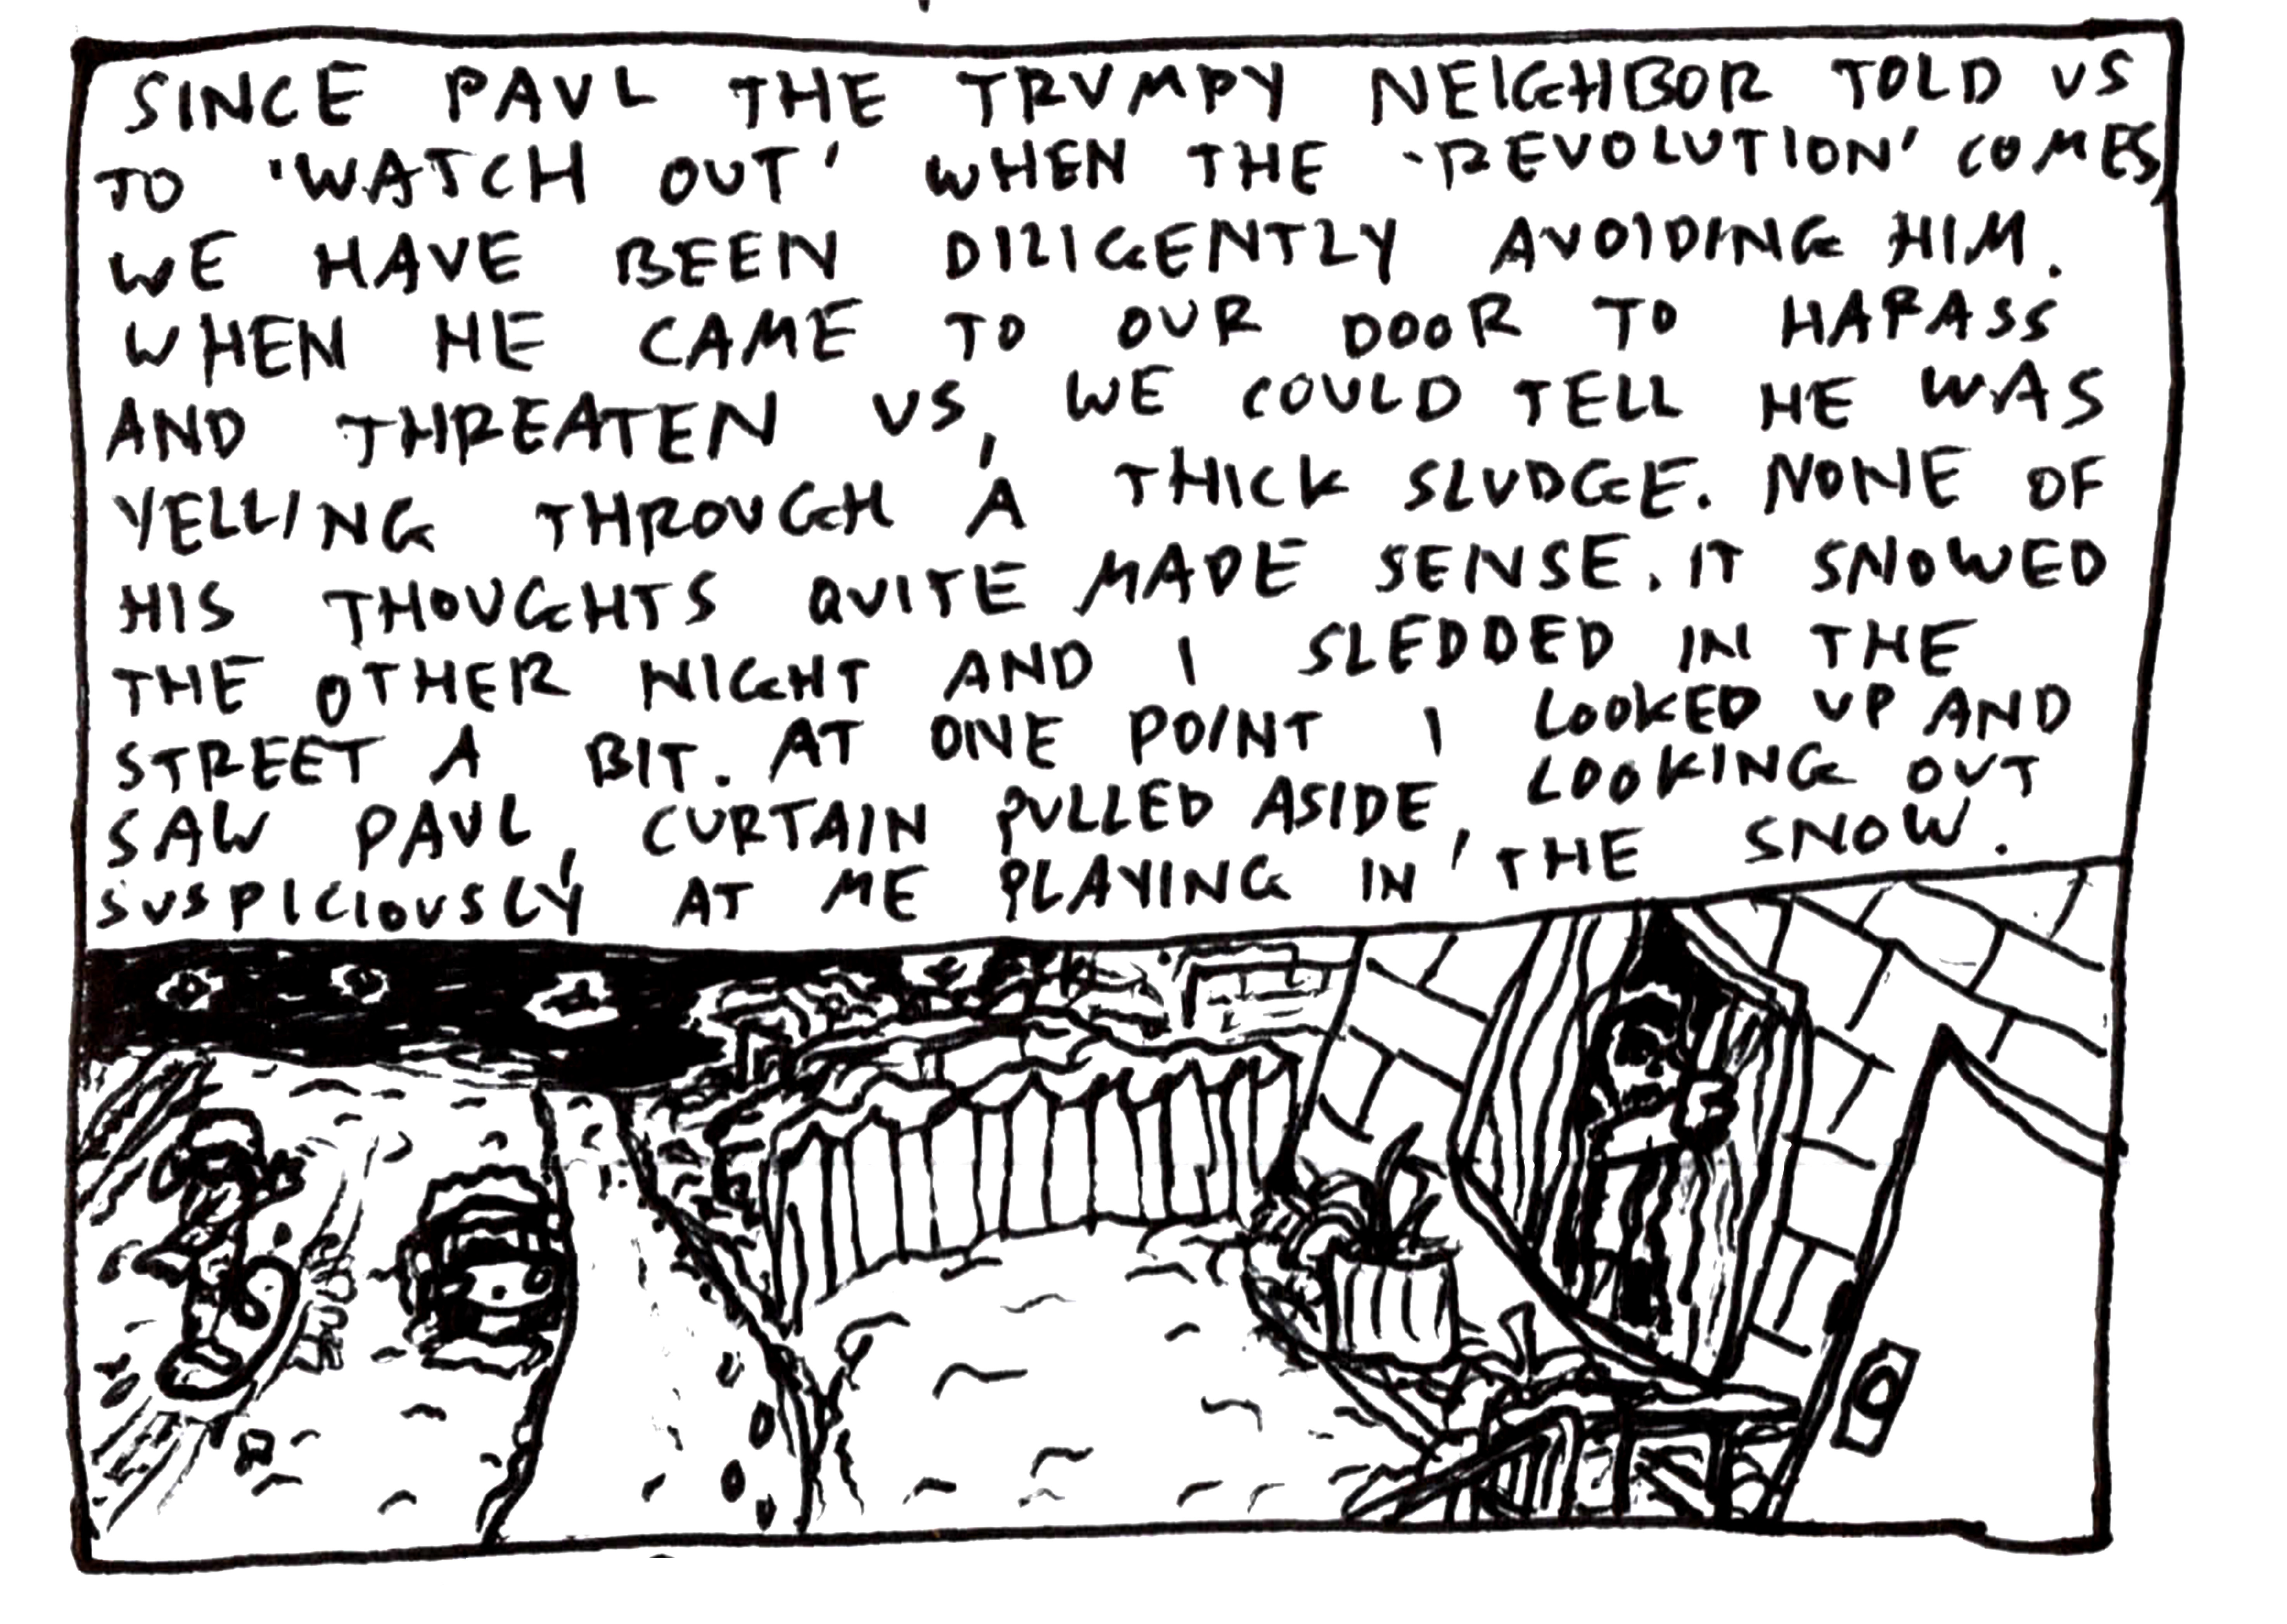 SINCE PAUL THE TRUMPY NEIGHBOR TOLD US
TO 'WATCH OUT' WHEN THE 'REVOLUTION' COMES,
WE HAVE BEEN DILIGENTLY AVOIDING HIM.
WHEN HE CAME TO OUR DOOR TO HARASS
AND THREATEN US, WE COULD TELL HE WAS
YELLING THROUGH A THICK SLUDGE. NONE OF
HIS THOUGHTS QUITE MADE SENSE. IT SNOWED
THE OTHER NIGHT AND I SLEDDED IN THE
STREET A BIT. AT ONE POINT I LOOKED UP AND
SAW PAUL, CURTAIN PULLED ASIDE, LOOKING OUT
SUSPICIOUSLY AT ME PLAYING IN THE SNOW.